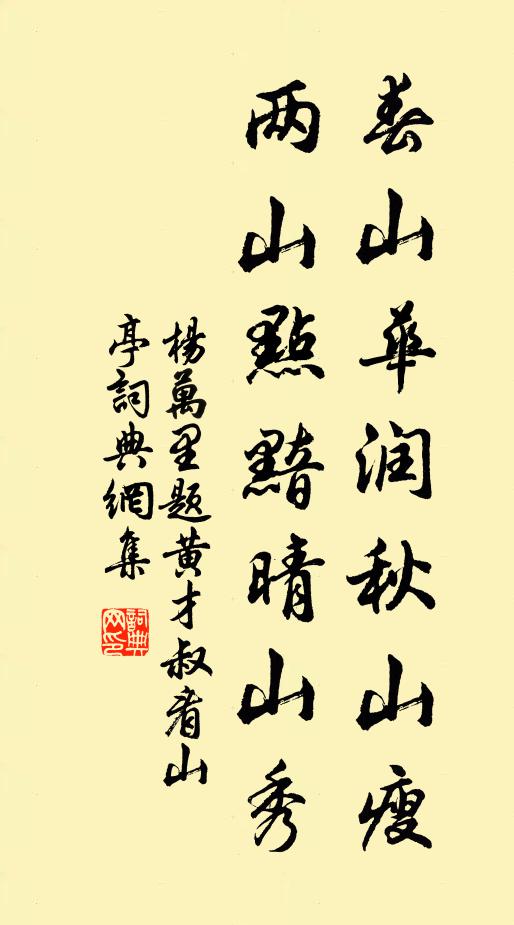 春山華润秋山瘦
雨山點黯晴山秀
楊萬里题黄才叔看山
亭詞典網集
詞典
网印